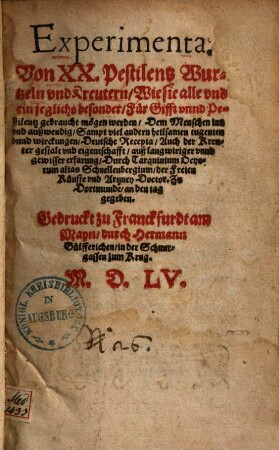 Experimenta.
Von XX. Pestilentz Wur-
tzeln vnd Kreutern/ Wie sie alle vnd
ein jeglichs besonder/ Für Gifft vnnd Pe-
stilentz gebraucht mögen werden/ Dem Menschen inn
vnd außwendig/ Sampt viel andern heilsamen tugenten
vnnd wirckungen/ Deutsche Recepta/ Auch der Kreu-
ter gestalt vnd eigenschafft/ auß langwiriger vnnd
gewisser erfarung/ Durch Tarquinium Ocyo-
rum alias Schnellenbergium/ der Freien
Künste vnd Artzney Doctor. Zu
Dortmunde/ an den tag
gegeben.
Gedruckt zu Franckfurdt am
Mayn/ durch Hermann
Gülfferichen/ in der Schnur-
gassen zum Krug.
M. D. LV.
KÖNIGL. KREISBIBLIOTHEK
IN
AUGSBURG
N. 26.
Med
1433